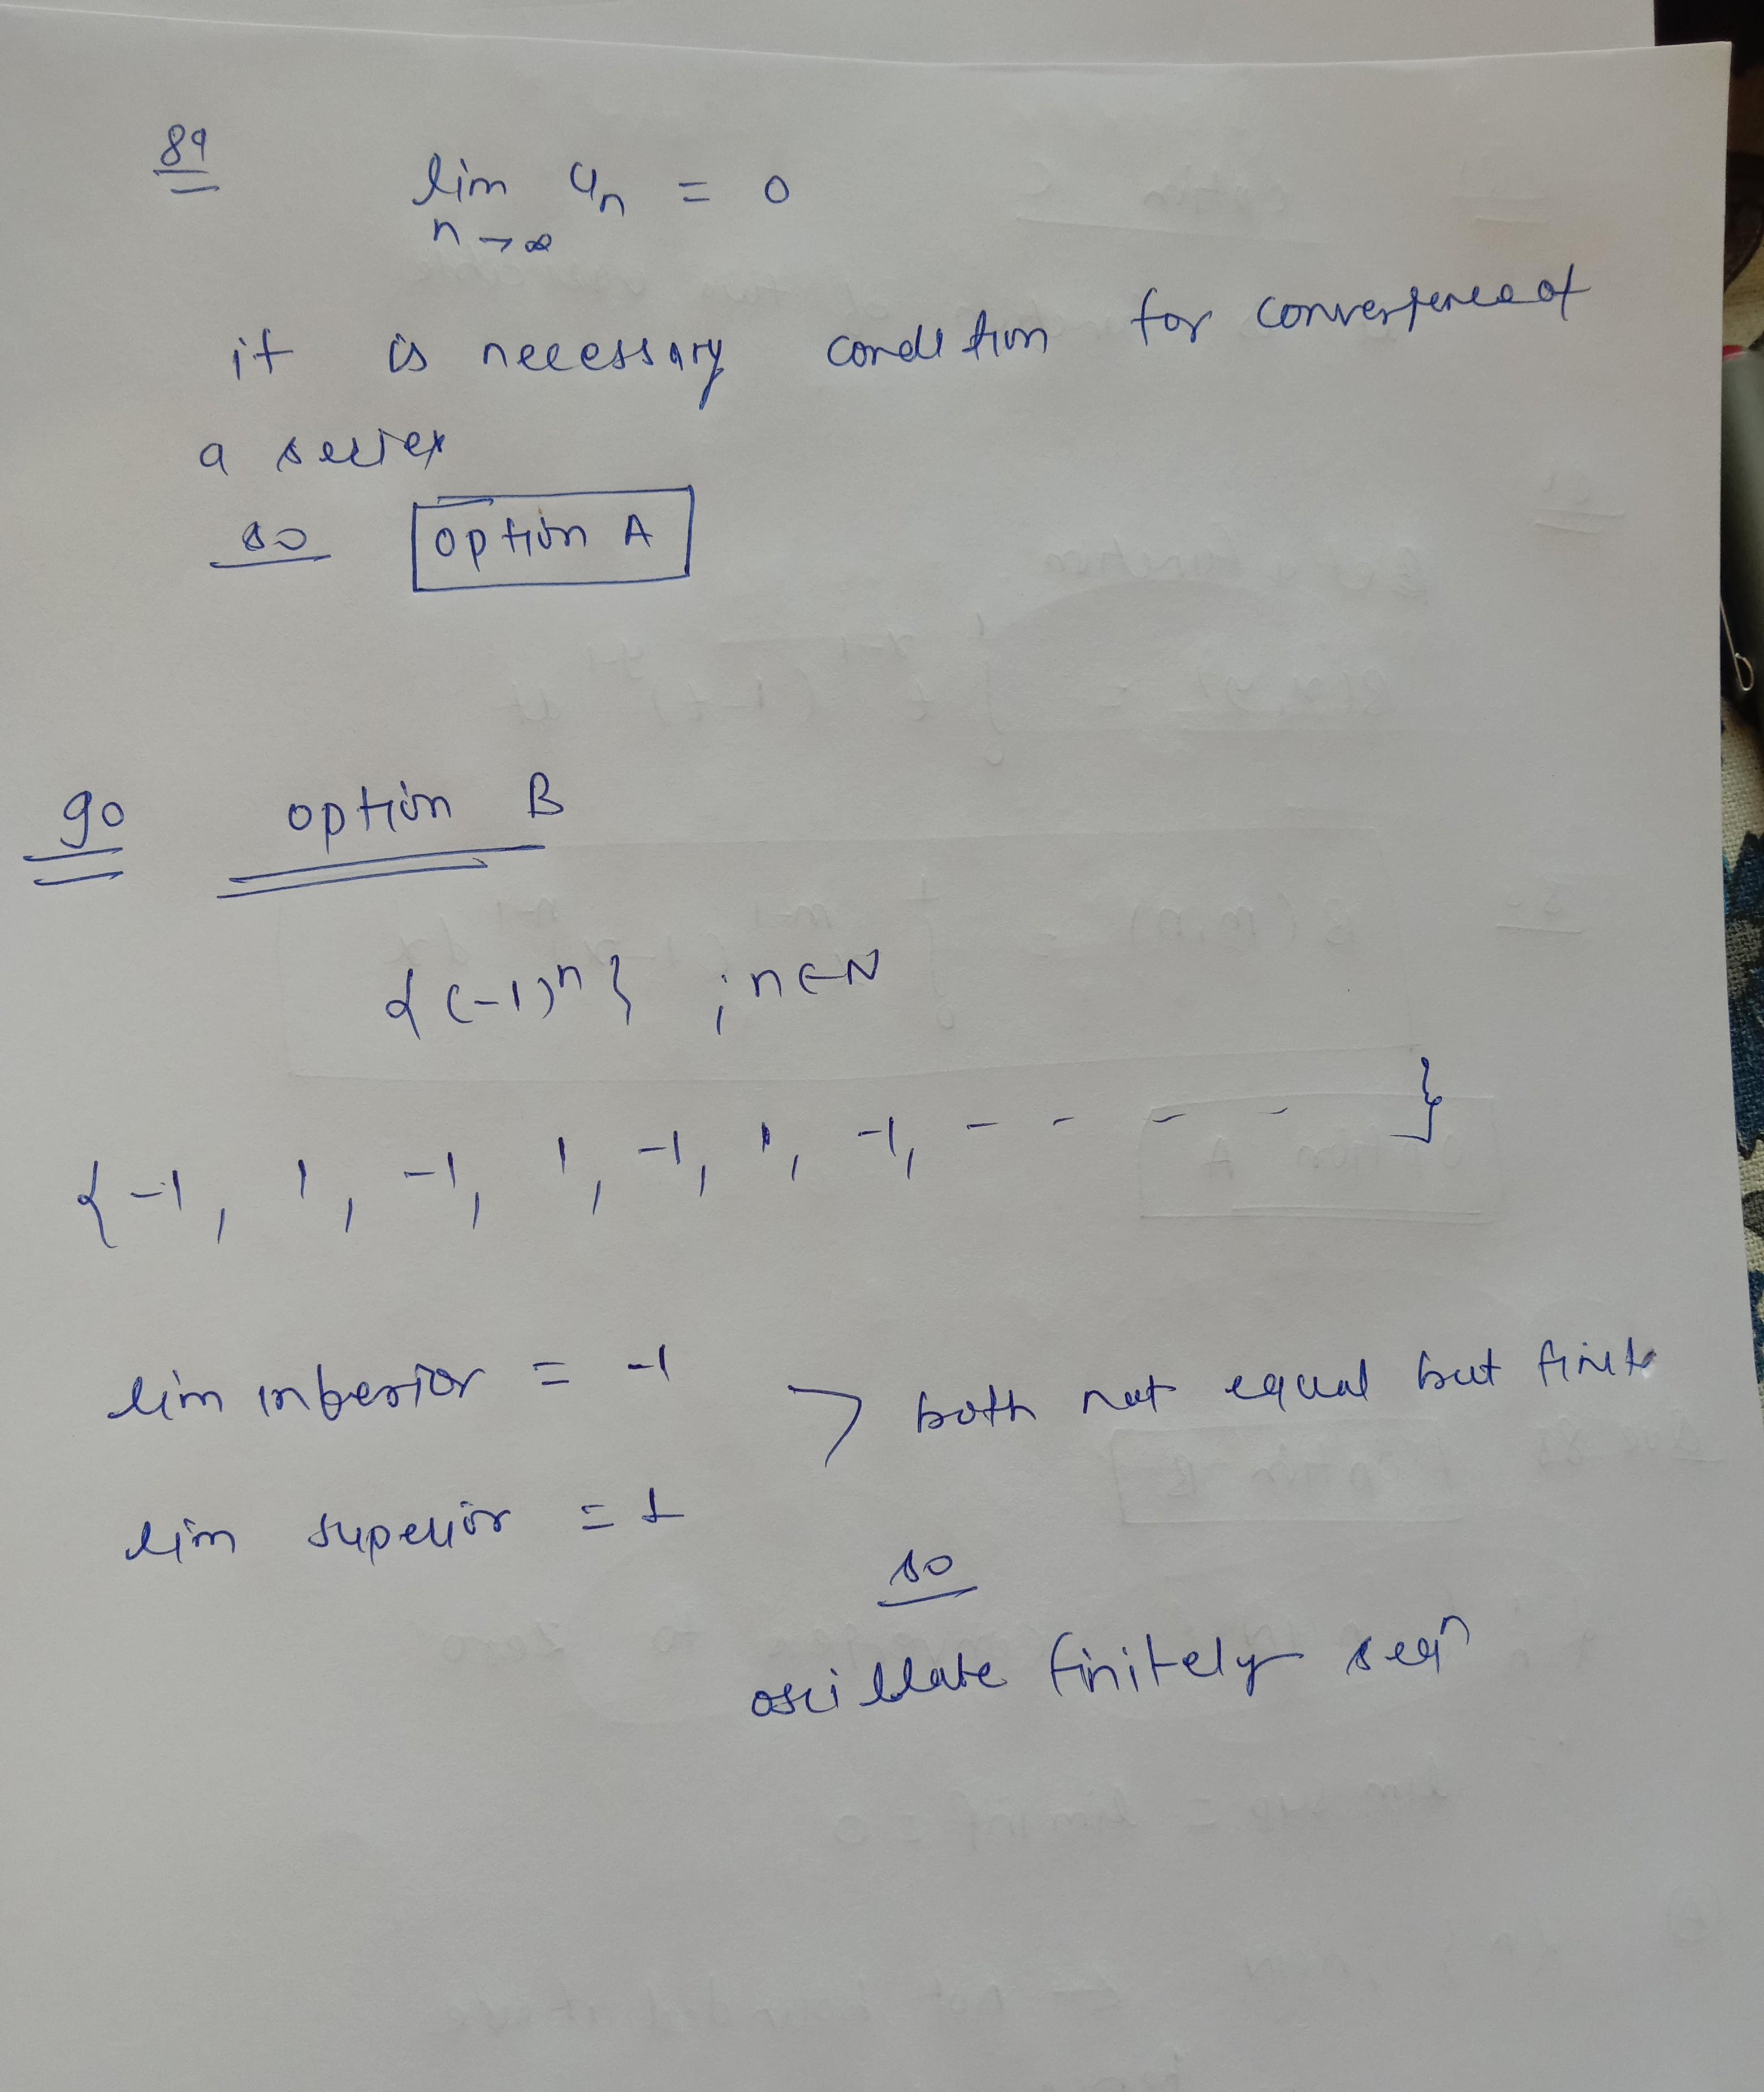 89
lim uₙ = 0
n→∞
it is necessary condition for convergence of
a series
so option A
90 option B
{(-1)ⁿ} ; n∈N
{-1, 1, -1, 1, -1, 1, -1, - - - - }
lim inferior = -1
both not equal but finite
lim superior = 1
so
oscillate finitely seqⁿ